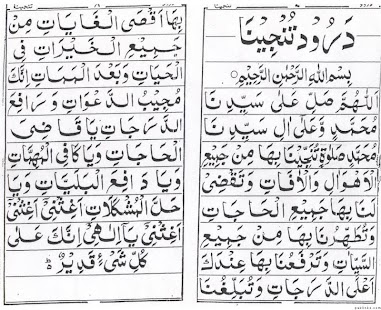 دَرُودِ تُنَجِّينَا
بِسْمِ اللهِ الرَّحْمٰنِ الرَّحِيْمِ
اَللّٰهُمَّ صَلِّ عَلٰى سَيِّدِنَا
مُحَمَّدٍ وَّعَلٰى اٰلِ سَيِّدِنَا
مُحَمَّدٍ صَلٰوةً تُنَجِّيْنَا بِهَا مِنْ جَمِيْعِ
الْاَهْوَالِ وَالْاٰفَاتِ وَتَقْضِىْ
لَنَا بِهَا جَمِيْعَ الْحَاجَاتِ
وَتُطَهِّرُنَا بِهَا مِنْ جَمِيْعِ
السَّيِّاٰتِ وَتَرْفَعُنَا بِهَا عِنْدَكَ
اَعْلَى الدَّرَجَاتِ وَتُبَلِّغُنَا
بِهَا اَقْصَى الْغَايَاتِ مِنْ
جَمِيْعِ الْخَيْرَاتِ فِى
الْحَيَاتِ وَبَعْدَ الْمَمَاتِ اِنَّكَ
مُجِيْبُ الدَّعَوَاتِ وَرَافِعُ
الدَّرَجَاتِ يَا قَاضِىَ
الْحَاجَاتِ وَيَا كَافِىَ الْمُهِمَّاتِ
وَيَا دَافِعَ الْبَلِيَّاتِ وَيَا
حَلَّ الْمُشْكِلَاتِ اَغِثْنِىْ اَغِثْنِىْ
اَغِثْنِىْ يَا اِلٰهِىْ اِنَّكَ عَلٰى
كُلِّ شَىْءٍ قَدِيْرٌ